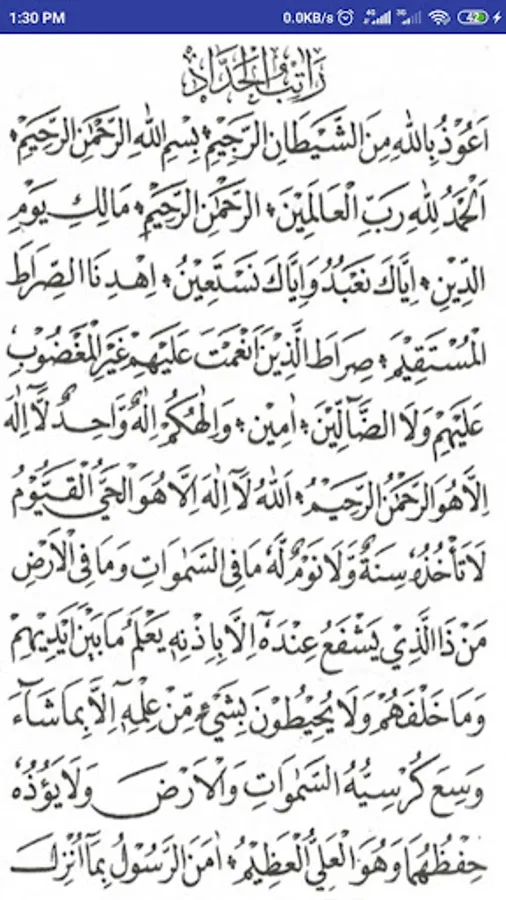 1:30 PM 0.0KB/s 4G 3G 42
رَاتِبُ الْحَدَّادْ
اَعُوْذُ بِاللهِ مِنَ الشَّيْطَانِ الرَّجِيْمِ بِسْمِ اللهِ الرَّحْمٰنِ الرَّحِيْمِ
اَلْحَمْدُ لِلّٰهِ رَبِّ الْعَالَمِيْنَ الرَّحْمٰنِ الرَّحِيْمِ مَالِكِ يَوْمِ
الدِّيْنِ اِيَّاكَ نَعْبُدُ وَاِيَّاكَ نَسْتَعِيْنُ اِهْدِنَا الصِّرَاطَ
الْمُسْتَقِيْمَ صِرَاطَ الَّذِيْنَ اَنْعَمْتَ عَلَيْهِمْ غَيْرِ الْمَغْضُوْبِ
عَلَيْهِمْ وَلَا الضَّآلِّيْنَ اٰمِيْن وَاِلٰهُكُمْ اِلٰهٌ وَّاحِدٌ لَّآ اِلٰهَ
اِلَّا هُوَ الرَّحْمٰنُ الرَّحِيْمُ اَللهُ لَآ اِلٰهَ اِلَّا هُوَ الْحَيُّ الْقَيُّوْمُ
لَا تَأْخُذُهُ سِنَةٌ وَّلَا نَوْمٌ لَهُ مَا فِى السَّمٰوَاتِ وَمَا فِى الْاَرْضِ
مَنْ ذَا الَّذِيْ يَشْفَعُ عِنْدَهُٓ اِلَّا بِاِذْنِهٖ يَعْلَمُ مَا بَيْنَ اَيْدِيْهِمْ
وَمَا خَلْفَهُمْ وَلَا يُحِيْطُوْنَ بِشَيْءٍ مِّنْ عِلْمِهٖٓ اِلَّا بِمَا شَآءَ
وَسِعَ كُرْسِيُّهُ السَّمٰوَاتِ وَالْاَرْضَ وَلَا يَؤُدُهُ
حِفْظُهُمَا وَهُوَ الْعَلِيُّ الْعَظِيْمُ اٰمَنَ الرَّسُوْلُ بِمَآ اُنْزِلَ